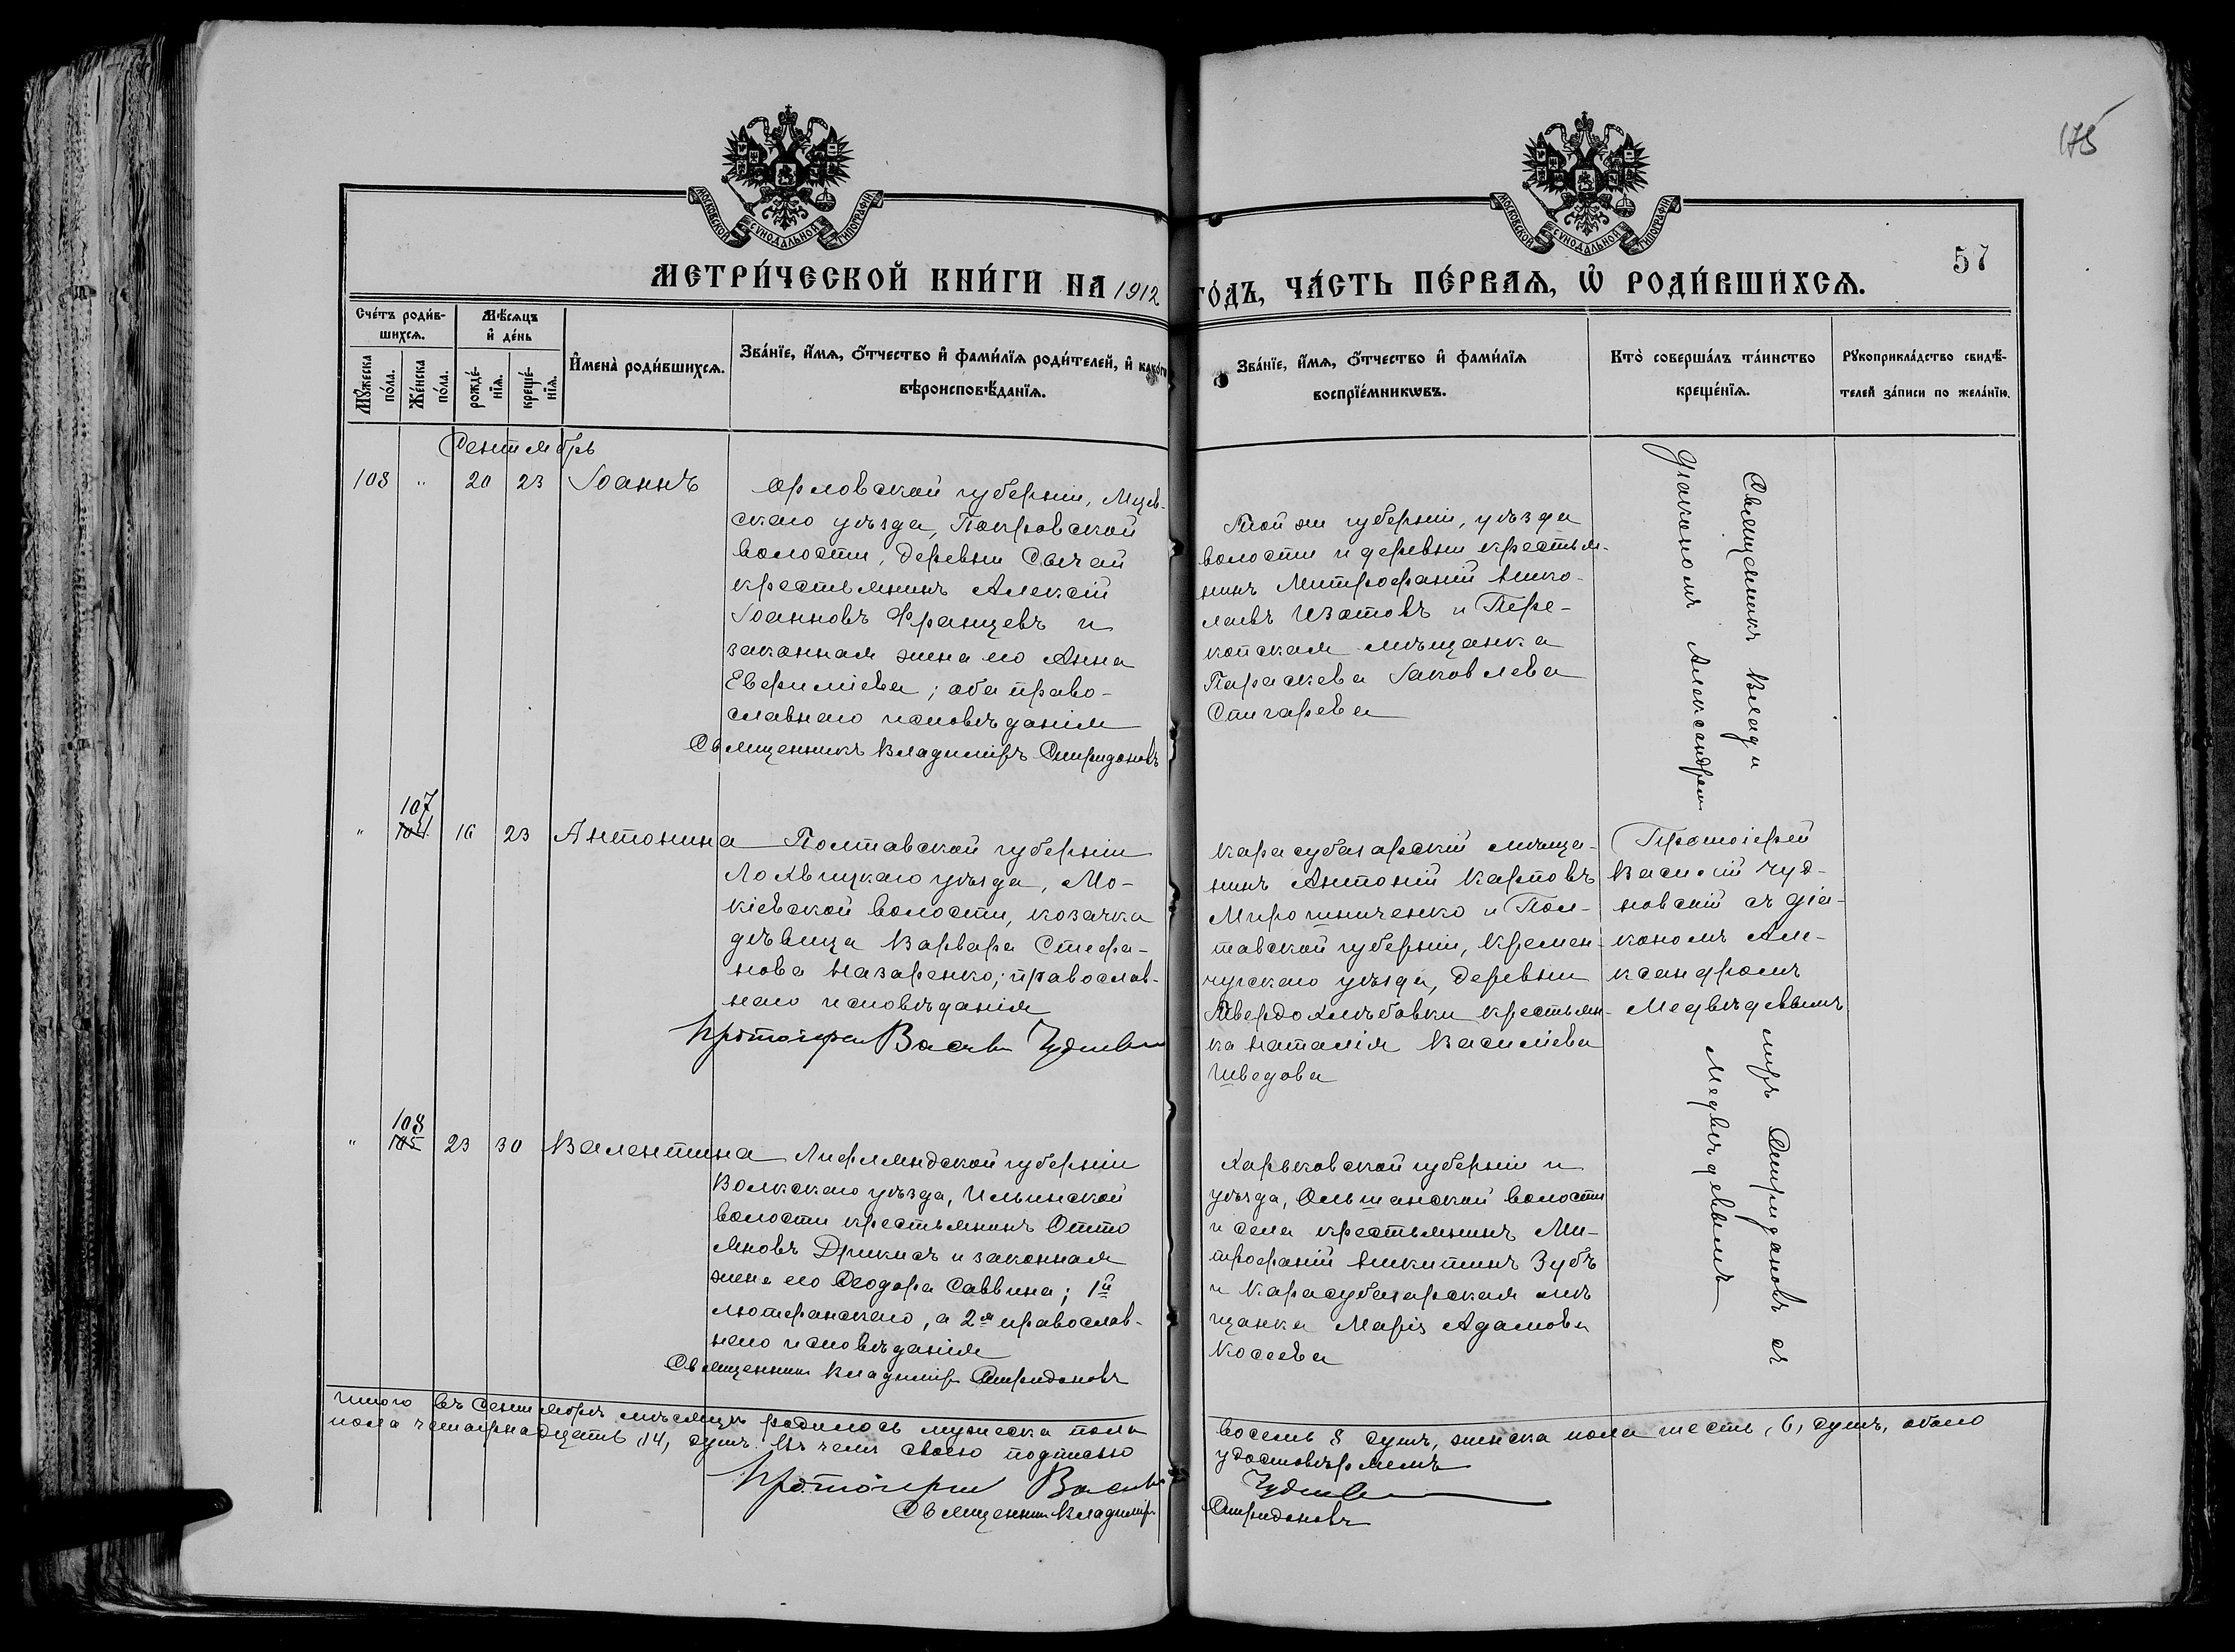 175
МОСКОВСКОЙ СУНОДАЛЬНОЙ ТИПОГРАФІИ
МОСКОВСКОЙ СУНОДАЛЬНОЙ ТИПОГРАФІИ
57
МЕТРИ́ЧЕСКОЙ КНИ́ГИ НА 1912 ГО́ДЪ, ЧА́СТЬ ПЕ́РВАЯ, Ѡ РОДИ́ВШИХСЯ.
Сче́тъ роди́в-
шихся.
Мꙋ́жеска
по́ла.
Же́нска
по́ла.
Мѣ́сяцъ
и҆ де́нь
рожде́-
нїя.
креще́-
нїя.
И҆мена̀ роди́вшихся.
Зва́нїе, и҆́мя, ѻ҆́тчество и҆ фами́лїя роди́телей, и҆ како́гѡ
вѣроисповѣ́данїя.
Зва́нїе, и҆́мя, ѻ҆́тчество и҆ фами́лїя
воспрїе́мникѡвъ.
Кто̀ соверша́лъ та́инство
креще́нїя.
Рꙋкоприкла́дство свидѣ́-
телей за́писи по жела́нїю.
Сентябрь
108 " 20 23 Іоаннъ
Орловской губерніи, Мцен-
скаго уѣзда, Покровской
волости, деревни Сычей
крестьянинъ Алексій
Іоанновъ Францевъ и
законная жена его Анна
Евфиміева; оба право-
славнаго исповѣданія
Священникъ Владиміръ Спиридоновъ
Той же губерніи, уѣзда
волости и деревни крестья-
нинъ Митрофаній Нико-
лаевъ Изотовъ и Пере-
копская мѣщанка
Параскева Іаковлева
Стигарева
Священникъ Влади
діакономъ Александром
107
" 104 16 23 Антонина
Полтавской губерніи
Лохвицкаго уѣзда, Мо-
кіевской волости, козачка
дѣвица Варвара Стефа-
нова Назаренко; православ-
наго исповѣданія
Протоіерей Василій Чудновскій
Карасубазарскій мѣща-
нинъ Антоній Карповъ
Мирошниченко и Пол-
тавской губерніи, Кремен-
чугскаго уѣзда, деревни
Твердохлѣбовки крестьян-
ка Наталія Василіева
Шведова
Протоіерей
Василій Чуд-
новскій съ діа-
кономъ Але-
ксандромъ
Медвѣдевымъ
міръ Спиридоновъ съ
Медвѣдевымъ
108
" 105 23 30 Валентина
Лифляндской губерніи
Волкскаго уѣзда, Ильинской
волости крестьянинъ Отто
Яновъ Дрикисъ и законная
жена его Ѳеодора Саввина; 1й
лютеранскаго, а 2я православ-
наго исповѣданія
Священникъ Владиміръ Спиридоновъ
Харьковской губерніи и
уѣзда, Ольшанской волости
и села крестьянинъ Ми-
трофаній Никитинъ Зубъ
и Карасубазарская мѣ
щанка Марія Адамова
Косеева
Итого въ Сентябрѣ мѣсяцѣ родилось мужеска пола восемь 8 душъ, женска пола шесть, 6, душъ, обоего
пола четырнадцать 14, душъ. Въ чемъ своею подписью удостовѣряемъ
Протоіерей Василій Чудновскій
Священникъ Владиміръ Спиридоновъ